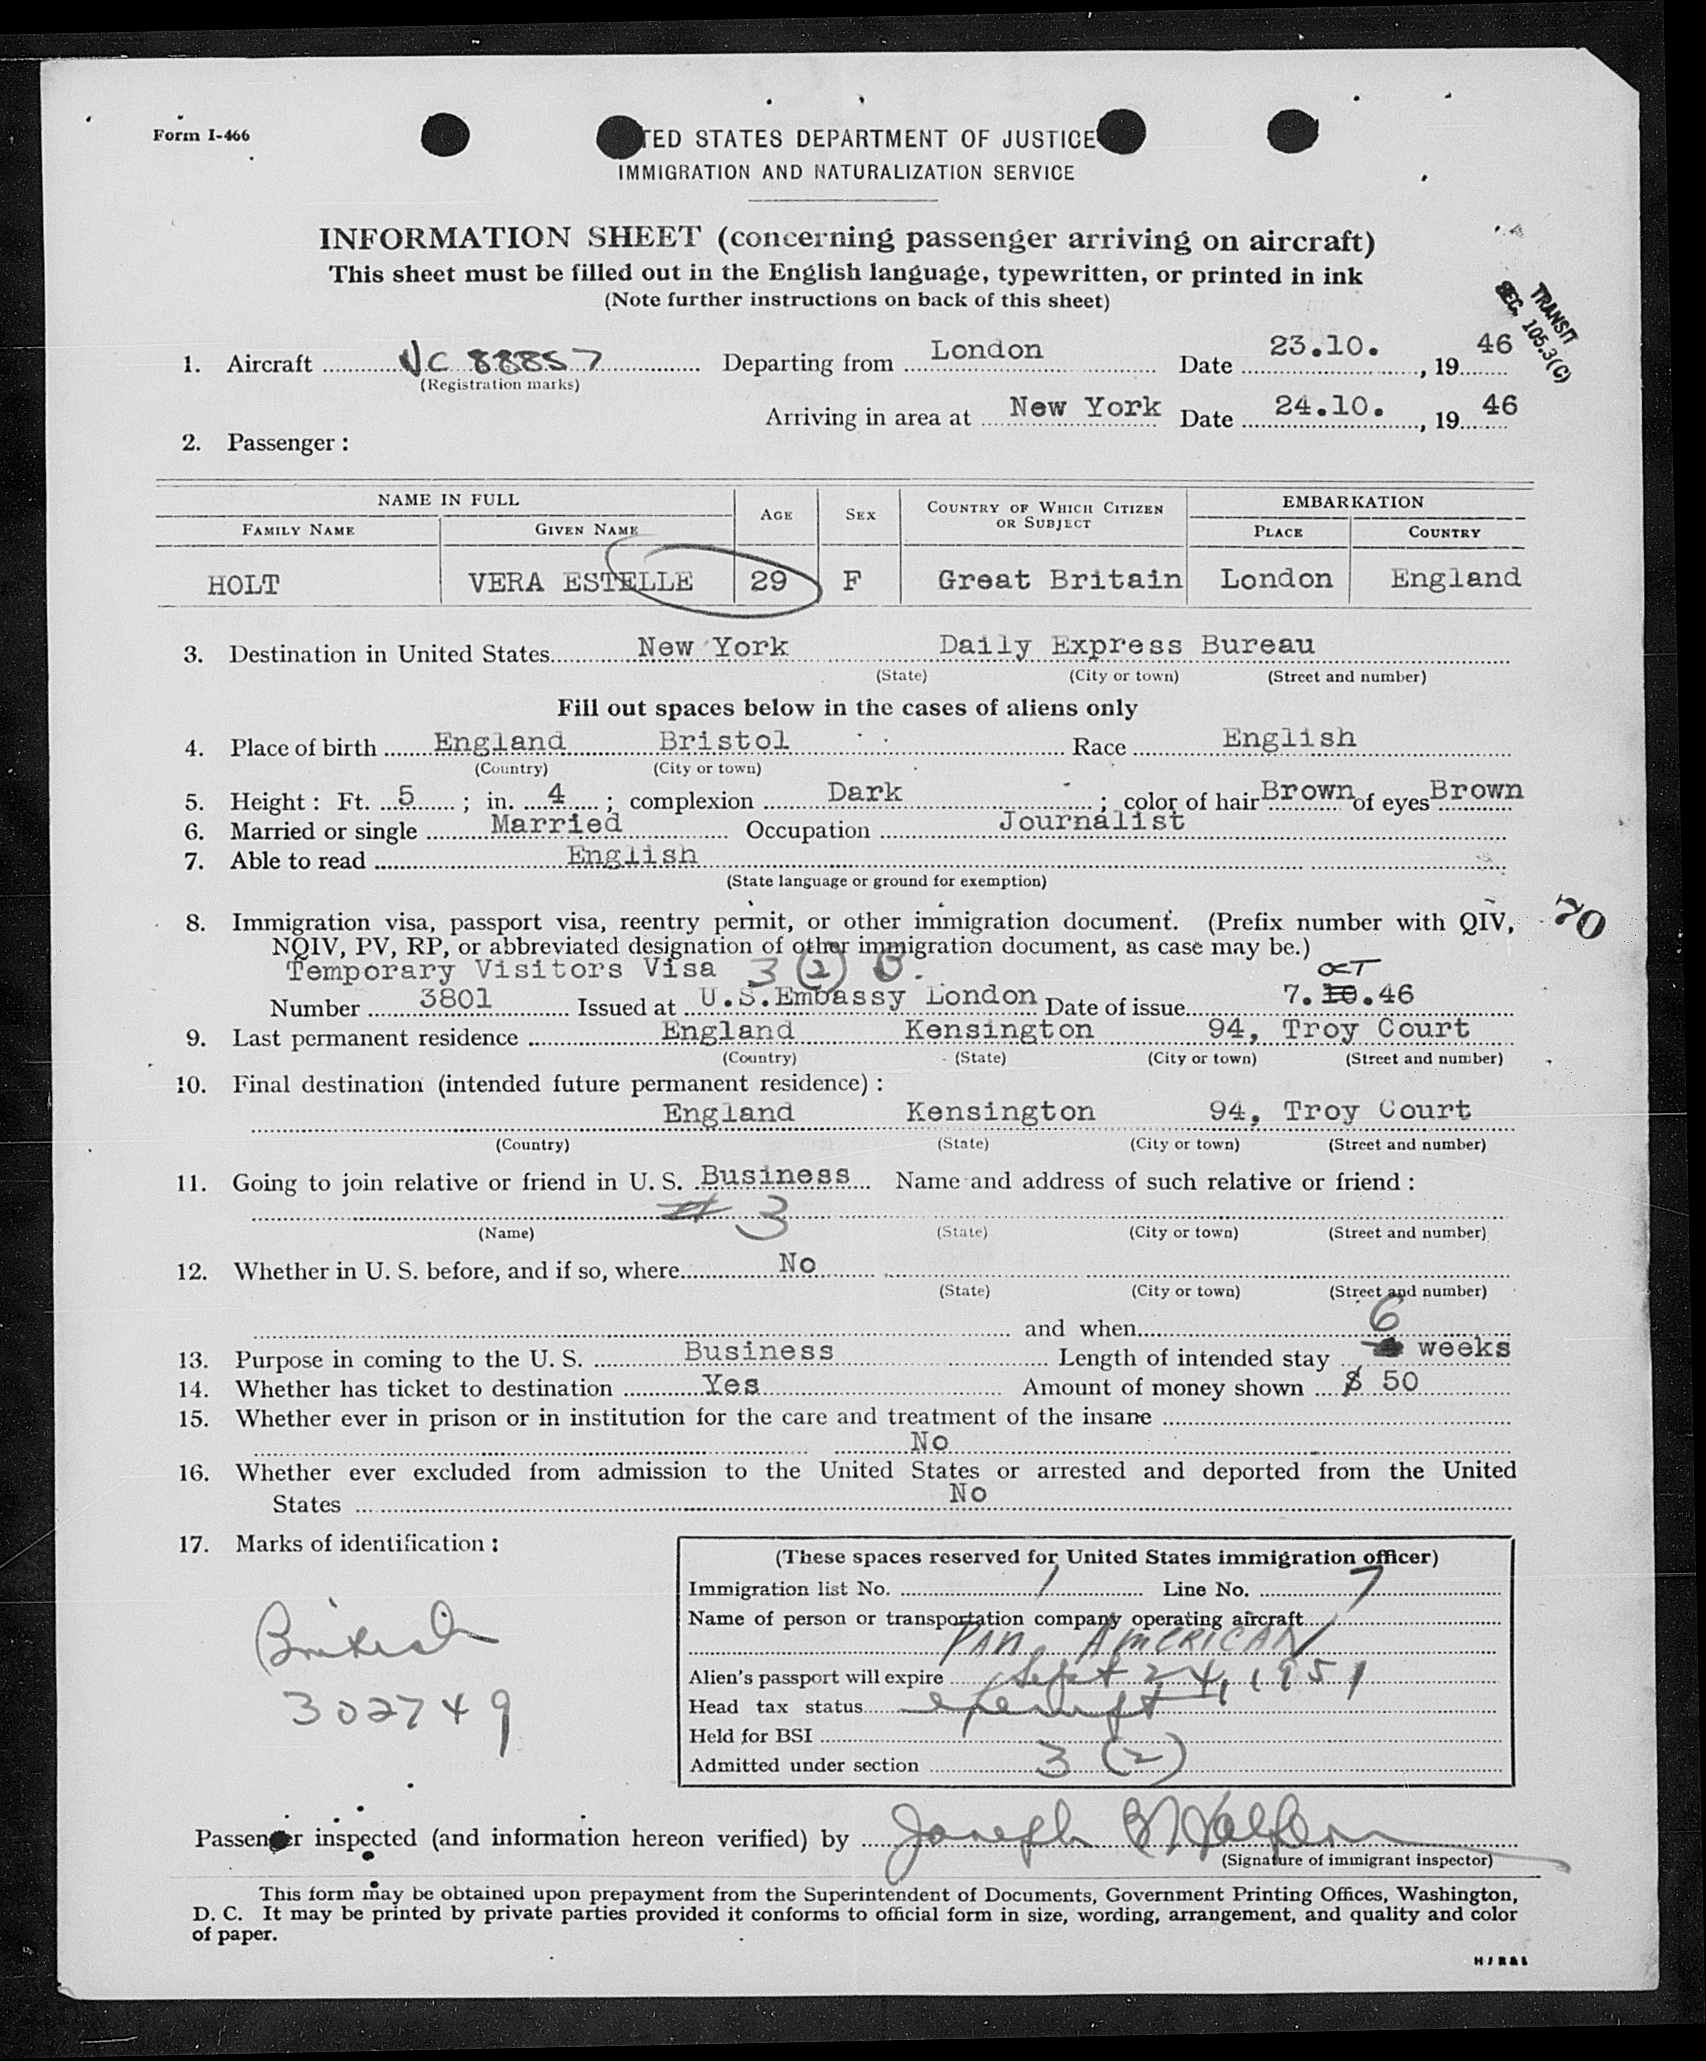 Form I-466
TED STATES DEPARTMENT OF JUSTICE
IMMIGRATION AND NATURALIZATION SERVICE
INFORMATION SHEET (concerning passenger arriving on aircraft)
This sheet must be filled out in the English language, typewritten, or printed in ink
(Note further instructions on back of this sheet)
TRANSIT
SEC. 105.3(C)
1. Aircraft NC 88857 Departing from London Date 23.10. , 19 46
(Registration marks)
Arriving in area at New York Date 24.10. , 19 46
2. Passenger:
NAME IN FULL AGE SEX COUNTRY OF WHICH CITIZEN OR SUBJECT EMBARKATION
FAMILY NAME GIVEN NAME PLACE COUNTRY
HOLT VERA ESTELLE 29 F Great Britain London England
3. Destination in United States New York Daily Express Bureau
(State) (City or town) (Street and number)
Fill out spaces below in the cases of aliens only
4. Place of birth England Bristol Race English
(Country) (City or town)
5. Height: Ft. 5 ; in. 4 ; complexion Dark ; color of hair Brown of eyes Brown
6. Married or single Married Occupation Journalist
7. Able to read English
(State language or ground for exemption)
8. Immigration visa, passport visa, reentry permit, or other immigration document. (Prefix number with QIV,
70
NQIV, PV, RP, or abbreviated designation of other immigration document, as case may be.)
Temporary Visitors Visa 3 (2) B. OCT
Number 3801 Issued at U.S.Embassy London Date of issue 7.10.46
9. Last permanent residence England Kensington 94, Troy Court
(Country) (State) (City or town) (Street and number)
10. Final destination (intended future permanent residence):
England Kensington 94, Troy Court
(Country) (State) (City or town) (Street and number)
11. Going to join relative or friend in U. S. Business Name and address of such relative or friend:
# 3
(Name) (State) (City or town) (Street and number)
12. Whether in U. S. before, and if so, where No
(State) (City or town) (Street and number)
and when
13. Purpose in coming to the U. S. Business Length of intended stay 6 weeks
14. Whether has ticket to destination Yes Amount of money shown $ 50
15. Whether ever in prison or in institution for the care and treatment of the insane
No
16. Whether ever excluded from admission to the United States or arrested and deported from the United
States No
17. Marks of identification:
British
302749
(These spaces reserved for United States immigration officer)
Immigration list No. 1 Line No. 7
Name of person or transportation company operating aircraft
PAN AMERICAN
Alien's passport will expire Sept 24, 1951
Head tax status exempt
Held for BSI
Admitted under section 3 (2)
Passenger inspected (and information hereon verified) by Joseph
(Signature of immigrant inspector)
This form may be obtained upon prepayment from the Superintendent of Documents, Government Printing Offices, Washington,
D. C. It may be printed by private parties provided it conforms to official form in size, wording, arrangement, and quality and color
of paper.